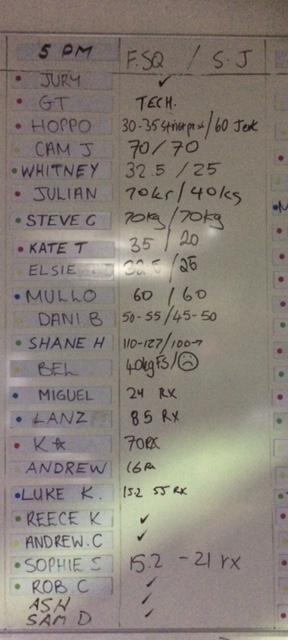 5 PM F.SQ / S.J
JURY ✓
GT TECH.
HOPPO 30-35 / 60 Jerk
CAM J 70/70
WHITNEY 32.5 / 25
JULIAN 70kr / 40kg
STEVE C 70kg / 70kg
KATE T 35 / 20
ELSIE 32.5 / 25
MULLO 60 / 60
DANI B 50-55/45-50
SHANE H 110-127/100→
BEL 40kgFS/☹
MIGUEL 24 RX
LANZ 85 RX
K☆ 70RX
ANDREW 16 Rx
LUKE K. 15.2 55 RX
REECE K ✓
ANDREW.C ✓
SOPHIE S 15.2 - 21 rx
ROB C ✓
ASH ✓
SAM D ✓